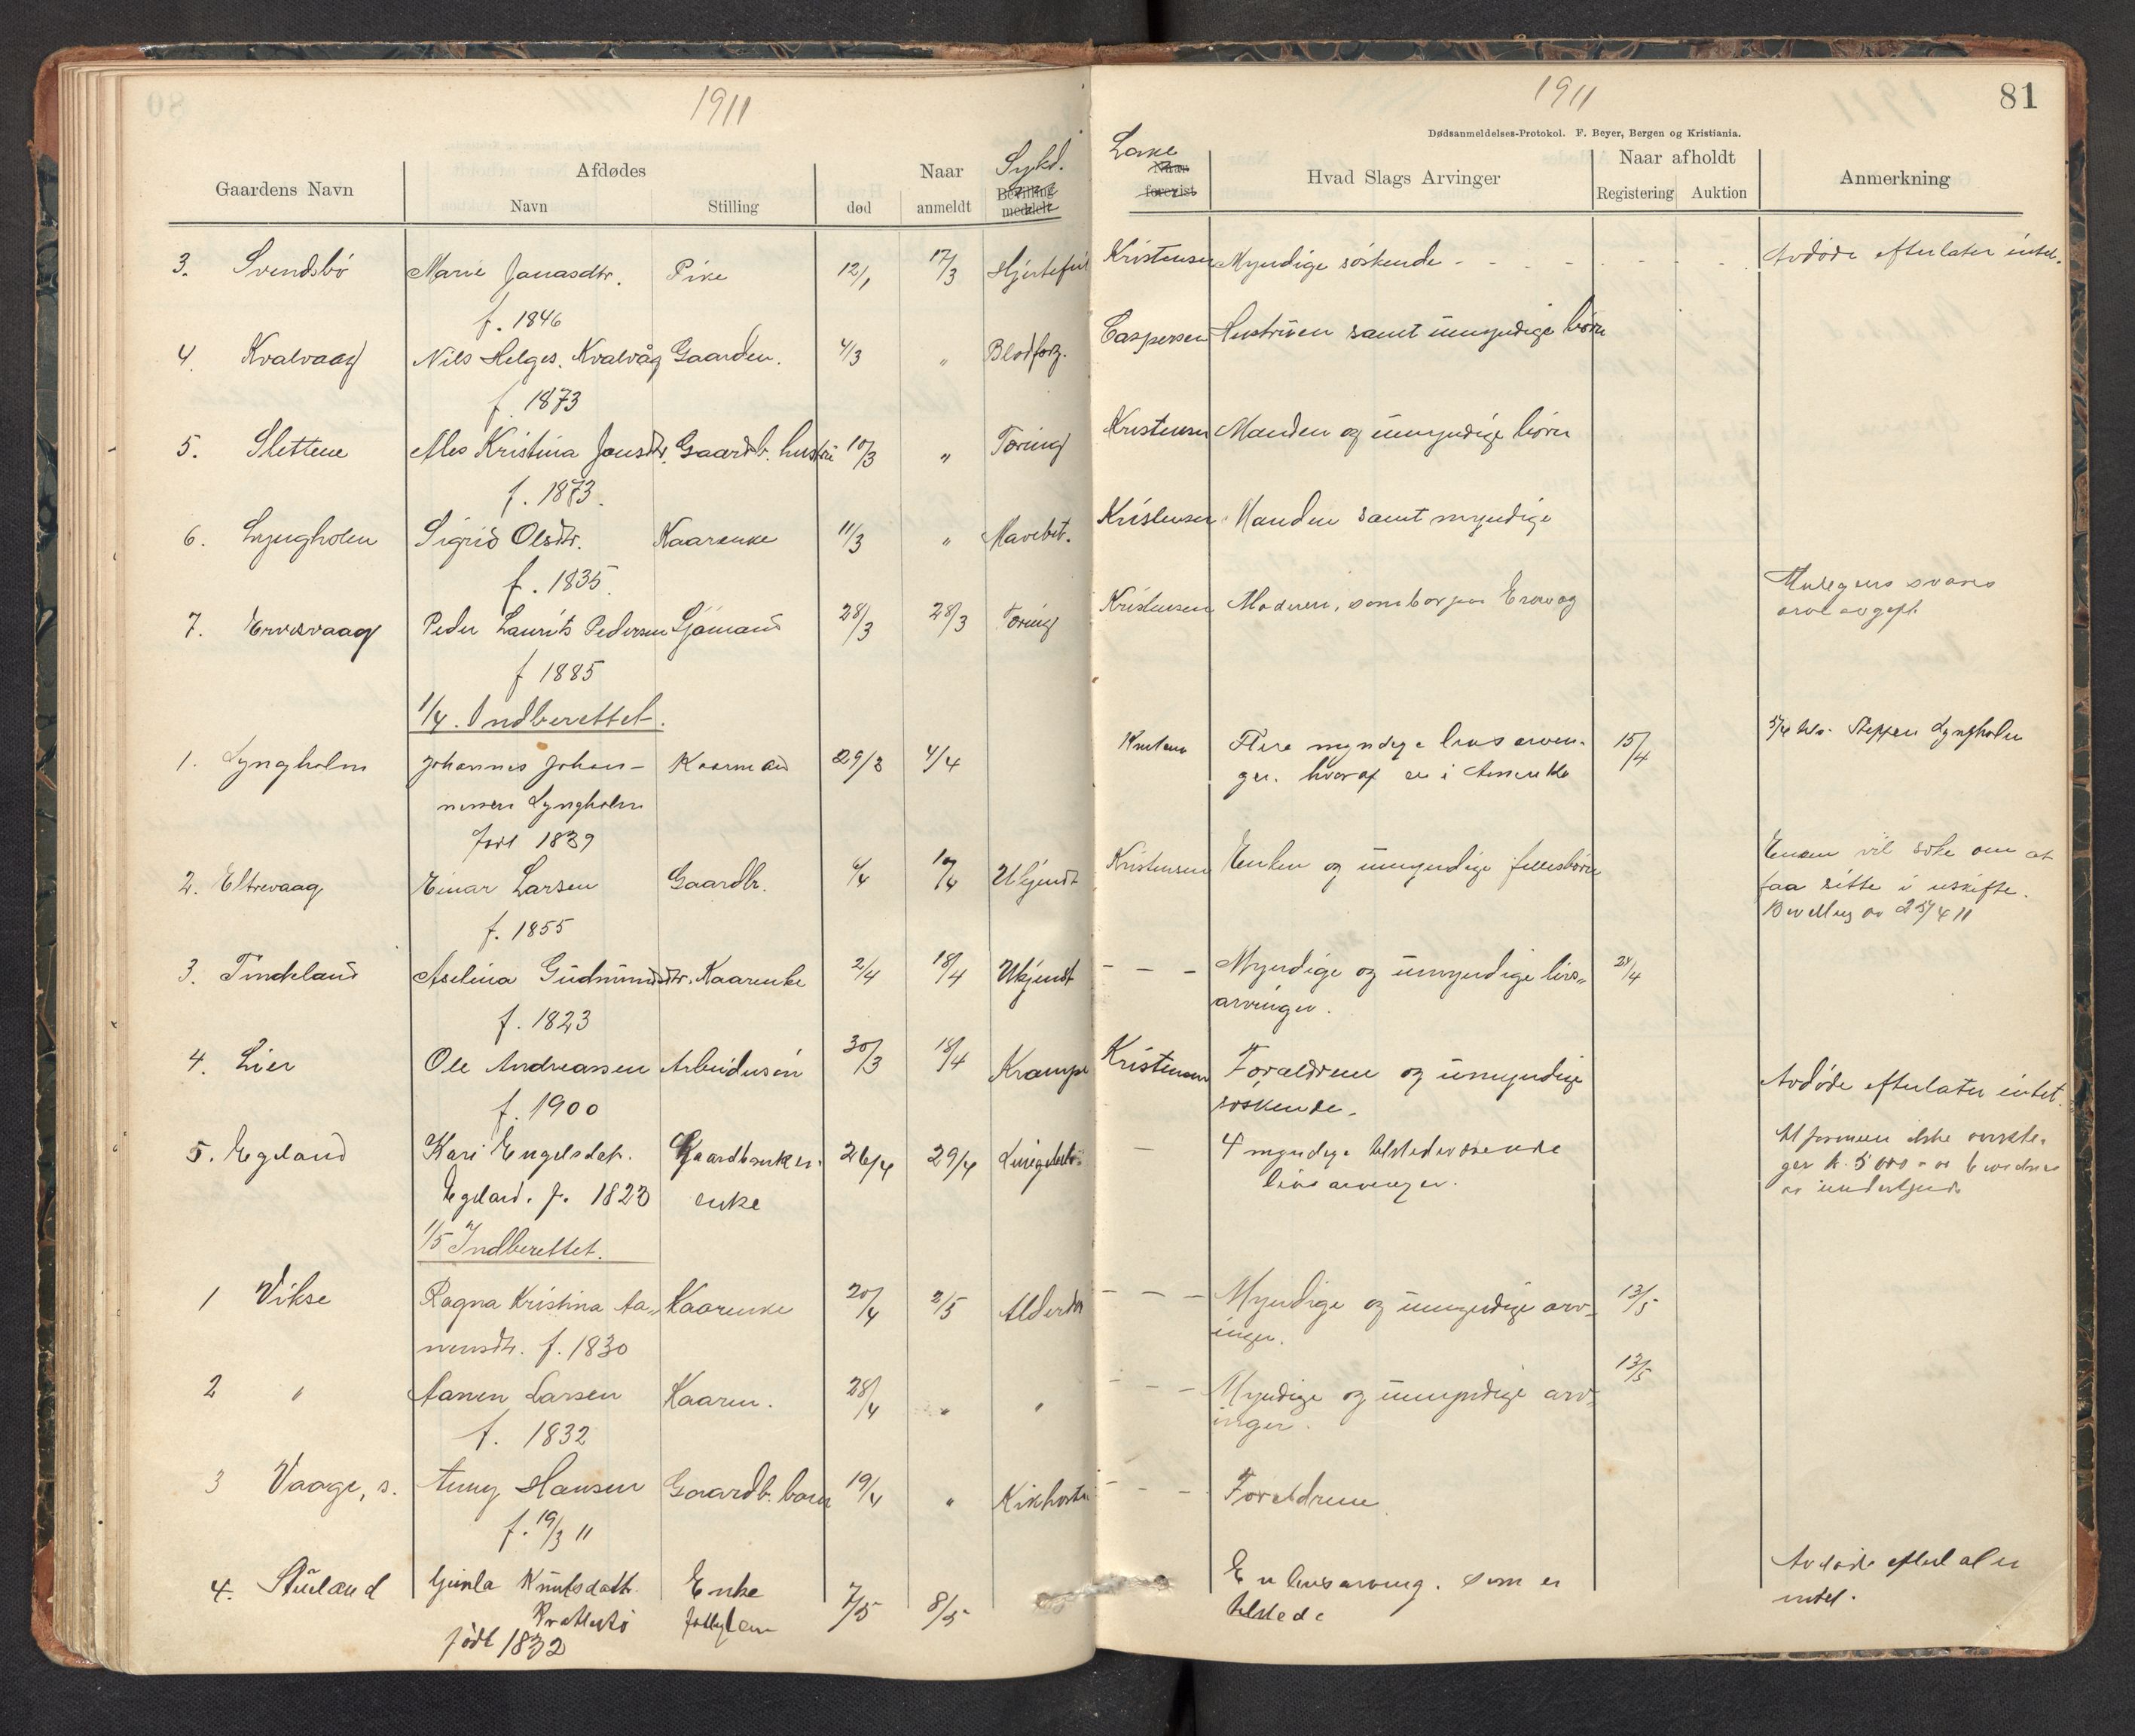 1911
Gaardens Navn
Afdødes
Navn
Stilling
Naar
død
anmeldt
Sykd.
Bevilling
meddelt
3. Svendsbø Marie Jonasdtr. Pike 12/1 17/3
f. 1846
4. Kvalvaag Nils Helges. Kvalvåg Gaarden. 4/3 " Blodforg.
f. 1873
5. Slettene Ales Kristina Jonsdtr. Gaardb. hustru 10/3 " Tæring
f. 1873.
6. Lyngholm Sigrid Olsdtr. Kaarenke 11/3 " Mavebet.
f. 1835.
7. Ervesvaag Peder Laurits Pedersen Sjømand 28/3 28/3 Tæring
f 1885
1/4. Indberettet.
1. Lyngholm Johannes Johan- Kaarmand 29/3 4/4
nessen Lyngholm
født 1839
2. Eltrevaag Einar Larsen Gaardbr. 4/4 10/4 Ukjendt
f. 1855
3. Tindeland Aselina Gudmundsdtr. Kaarenke 2/4 18/4 Ukjendt
f. 1823
4. Lier Ole Andreassen Arbeidersøn 30/3 18/4 Krampe
f. 1900
5. Egeland Kari Engelsdat. Gaardbruker- 26/4 29/4
Egeland. f. 1823 enke
1/5 Indberettet.
1 Vikse Ragna Kristina Aa- Kaarenke 20/4 2/5
nensdtr. f. 1830
2 " Aanen Larsen Kaarm. 28/4 " "
f. 1832
3 Vaage, s. Anny Hansen Gaardb. barn 19/4 " Kikhoste
f. 19/3 11
4. Stueland Gunla Knutsdatt. Enke 7/5 8/5
født 1832
1911
81
Dødsanmeldelses-Protokol. F. Beyer, Bergen og Kristiania.
Læge
Hvad Slags Arvinger
Naar afholdt
Registering
Auktion
Anmerkning
Kristensen Myndige søskende - - - - - - - Avdøde efterlater intet.
Caspersen Hustruen samt umyndige børn
Kristensen Manden og umyndige børn
Kristensen Manden samt myndige
Kristensen Moderen, som bor paa Ervevag
Flere myndige livsarven- 15/4 Steffen Lyngholm
ger. hvoraf en i Amerika
Kristensen Enken og umyndige fellesbørn Enken vil søke om at
faa sitte i uskifte.
Bevilling av 25/4 11
- - - Myndige og umyndige livs- 24/4
arvinger.
Kristensen Forældrene og umyndige Avdøde efterlater intet.
søskende.
— 4 myndige tilstedeværende
livsarvinger.
- - - Myndige og umyndige arv- 13/5
inger.
- - - Myndige og umyndige arv- 13/5
inger.
- - - Foreldrene.
En livsarving. som er Avdøde efterlater
tilstede intet.